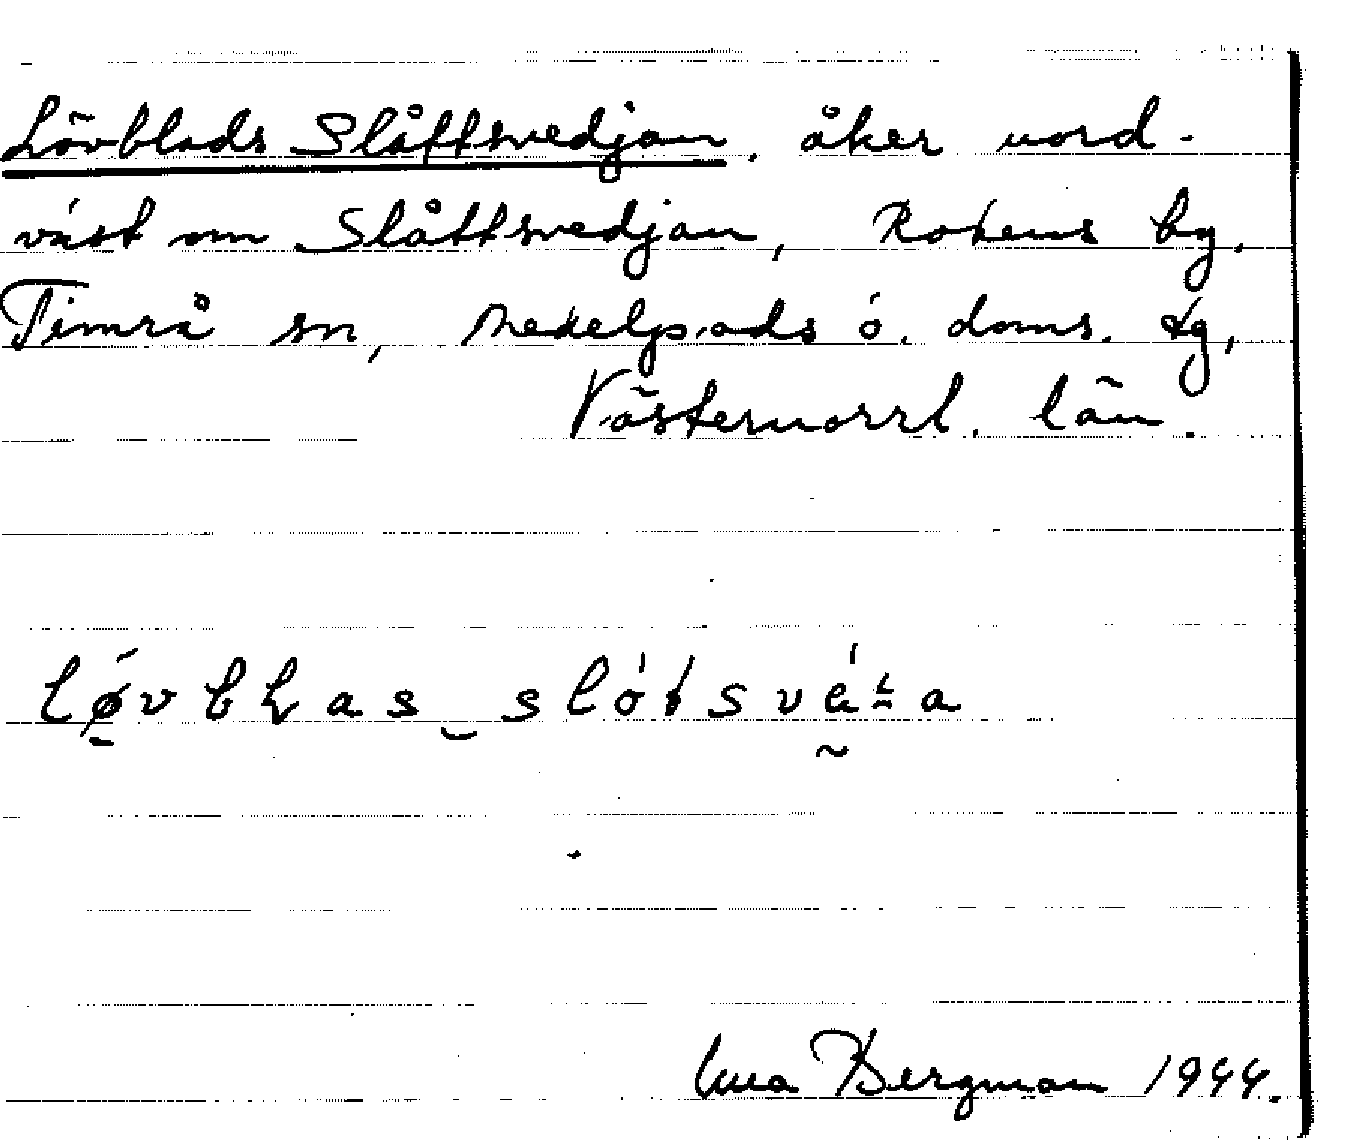 Lövblads Slåttsvedjan, åker nord-
väst om Slåttsvedjan, Rotens by,
Timrå sn, Medelpads ö. doms. tg,
Västernorrl. län.
Bergman 1944.